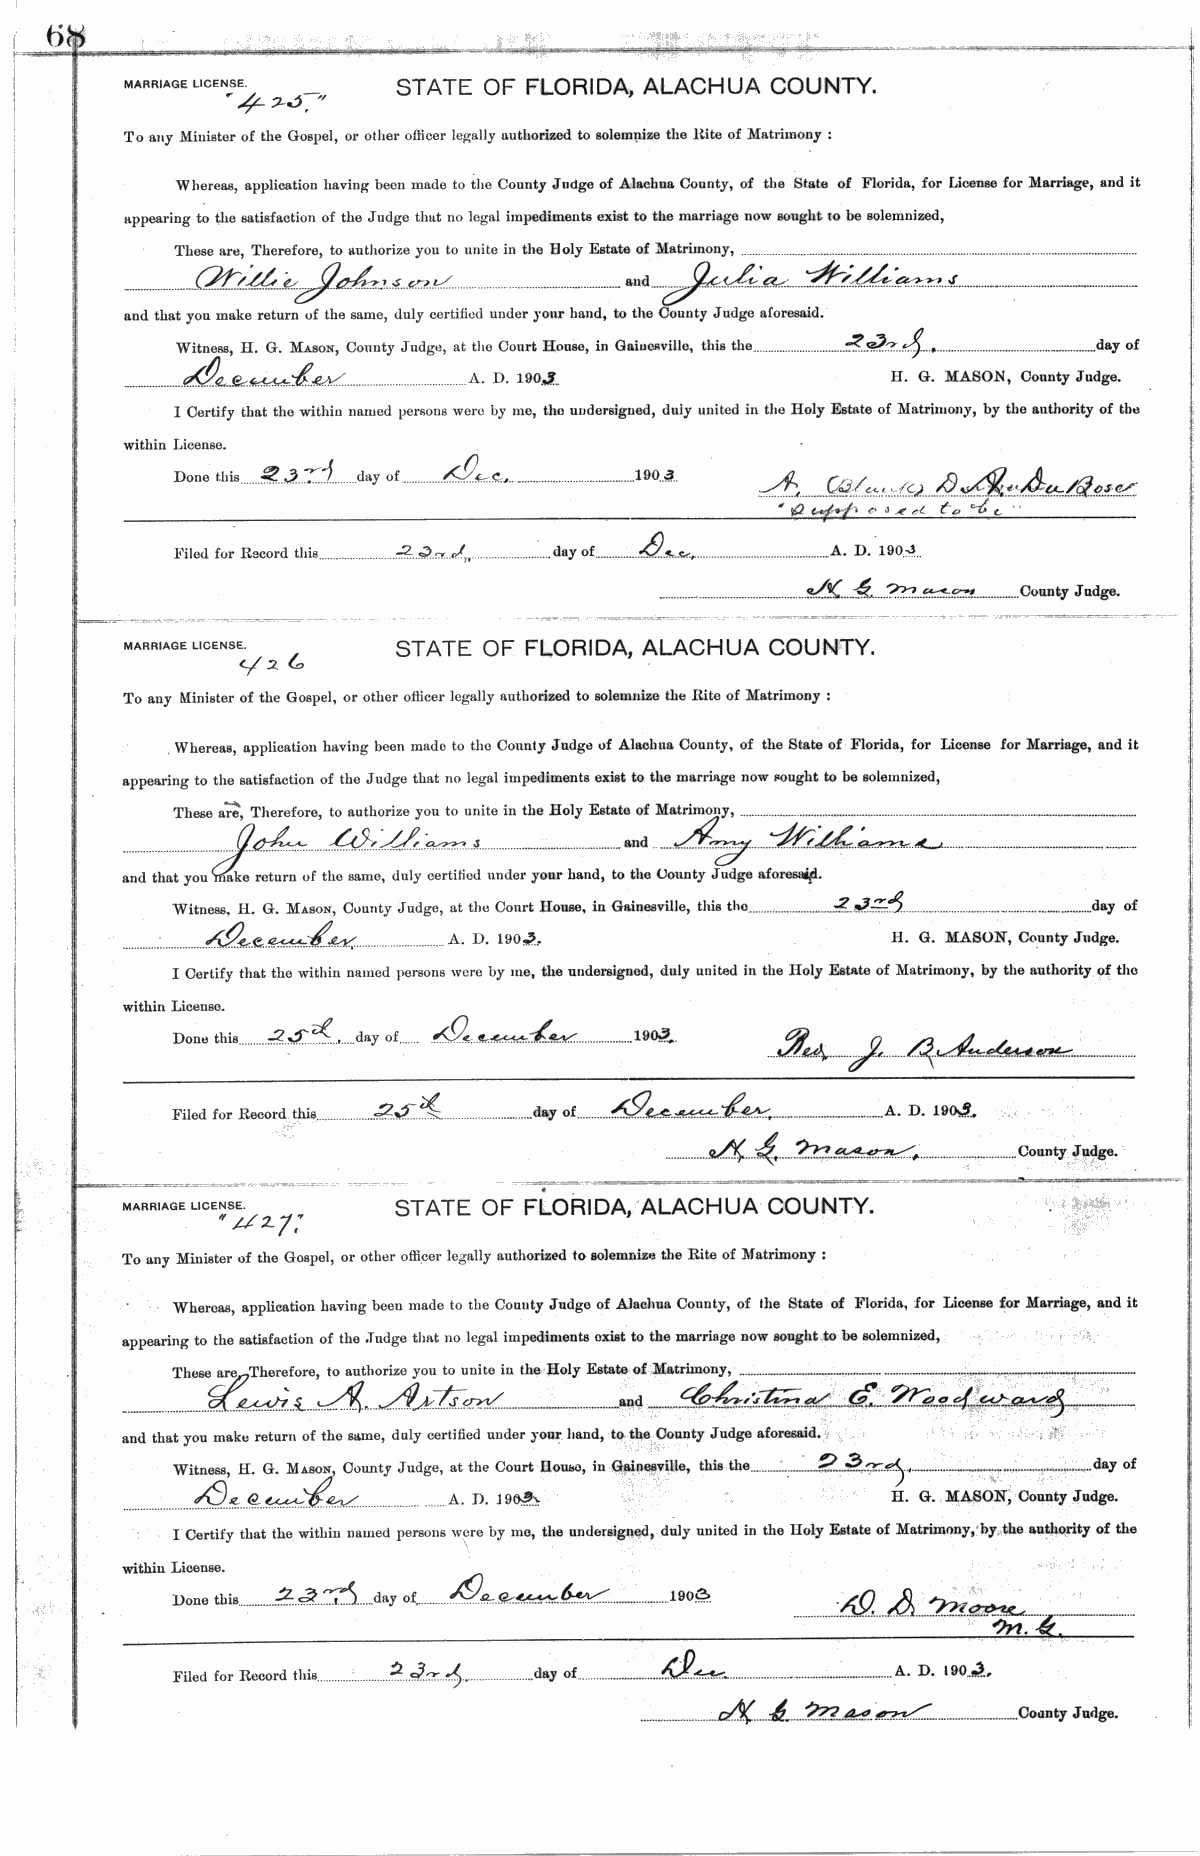 68
MARRIAGE LICENSE. STATE OF FLORIDA, ALACHUA COUNTY.
"425."
To any Minister of the Gospel, or other officer legally authorized to solemnize the Rite of Matrimony :
Whereas, application having been made to the County Judge of Alachua County, of the State of Florida, for License for Marriage, and it
appearing to the satisfaction of the Judge that no legal impediments exist to the marriage now sought to be solemnized,
These are, Therefore, to authorize you to unite in the Holy Estate of Matrimony,
Willie Johnson and Julia Williams
and that you make return of the same, duly certified under your hand, to the County Judge aforesaid.
Witness, H. G. MASON, County Judge, at the Court House, in Gainesville, this the 23rd. day of
December A. D. 1903 H. G. MASON, County Judge.
I Certify that the within named persons were by me, the undersigned, duly united in the Holy Estate of Matrimony, by the authority of the
within License.
Done this 23rd day of Dec. 1903
A. (Blank) Du Bose
"Supposed to be"
Filed for Record this 23rd, day of Dec. A. D. 1903
H. G. Mason County Judge.
MARRIAGE LICENSE. STATE OF FLORIDA, ALACHUA COUNTY.
426
To any Minister of the Gospel, or other officer legally authorized to solemnize the Rite of Matrimony :
Whereas, application having been made to the County Judge of Alachua County, of the State of Florida, for License for Marriage, and it
appearing to the satisfaction of the Judge that no legal impediments exist to the marriage now sought to be solemnized,
These are, Therefore, to authorize you to unite in the Holy Estate of Matrimony,
John Williams and Amy Williams
and that you make return of the same, duly certified under your hand, to the County Judge aforesaid.
Witness, H. G. MASON, County Judge, at the Court House, in Gainesville, this the 23rd day of
December, A. D. 1903. H. G. MASON, County Judge.
I Certify that the within named persons were by me, the undersigned, duly united in the Holy Estate of Matrimony, by the authority of the
within License.
Done this 25th. day of December 1903.
Rev. J. B. Anderson
Filed for Record this 25th day of December, A. D. 1903.
H. G. Mason. County Judge.
MARRIAGE LICENSE. STATE OF FLORIDA, ALACHUA COUNTY.
"427"
To any Minister of the Gospel, or other officer legally authorized to solemnize the Rite of Matrimony :
Whereas, application having been made to the County Judge of Alachua County, of the State of Florida, for License for Marriage, and it
appearing to the satisfaction of the Judge that no legal impediments exist to the marriage now sought to be solemnized,
These are, Therefore, to authorize you to unite in the Holy Estate of Matrimony,
Lewis A. Artson and Christina E. Woodward
and that you make return of the same, duly certified under your hand, to the County Judge aforesaid.
Witness, H. G. MASON, County Judge, at the Court House, in Gainesville, this the 23rd. day of
December A. D. 1903. H. G. MASON, County Judge.
I Certify that the within named persons were by me, the undersigned, duly united in the Holy Estate of Matrimony, by the authority of the
within License.
Done this 23rd day of December 1903
D. D. Moore
M. G.
Filed for Record this 23rd. day of Dec. A. D. 1903.
H. G. Mason County Judge.